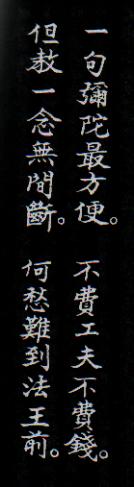 一句彌陀最方便。不費工夫不費錢。
但教一念無間斷。何愁難到法王前。